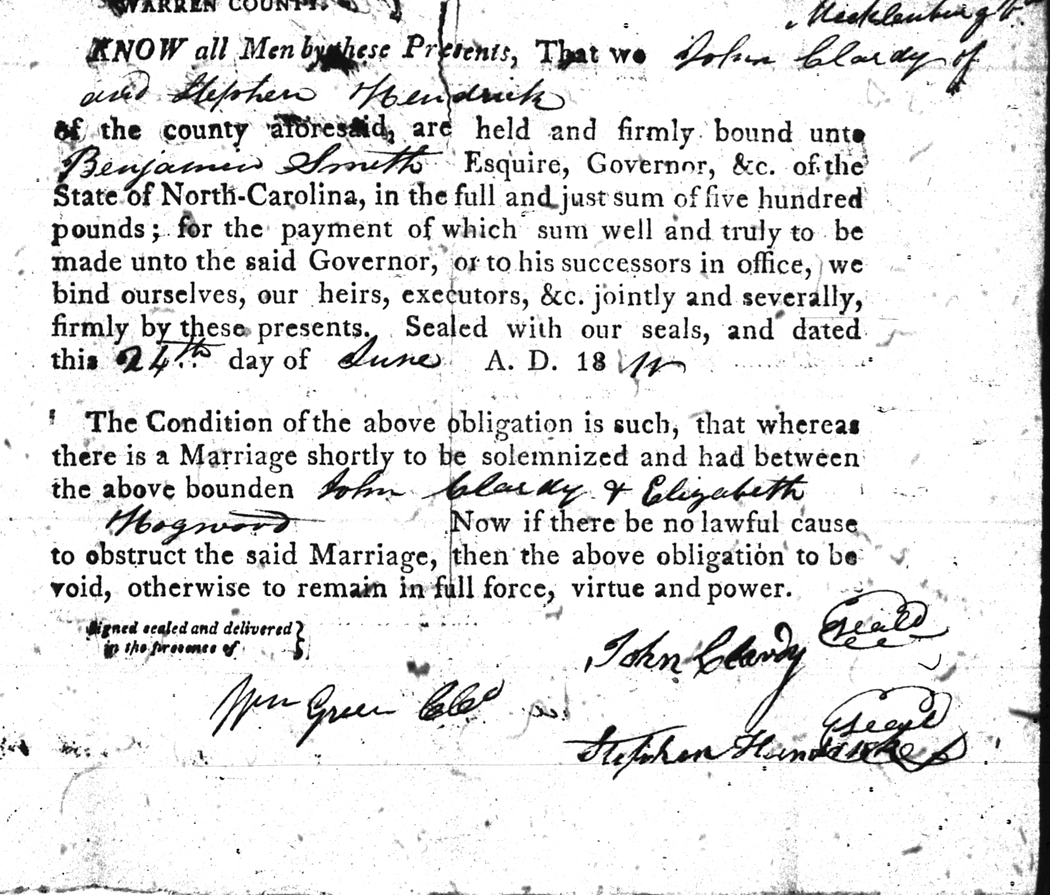 WARREN COUNTY.
Mecklenburg
KNOW all Men by these Presents, That we John Clardy of
and Stephen Hendrick
of the county aforesaid, are held and firmly bound unto
Benjamin Smith Esquire, Governor, &c. of the
State of North-Carolina, in the full and just sum of five hundred
pounds; for the payment of which sum well and truly to be
made unto the said Governor, or to his successors in office, we
bind ourselves, our heirs, executors, &c. jointly and severally,
firmly by these presents. Sealed with our seals, and dated
this 24th day of June A. D. 18
The Condition of the above obligation is such, that whereas
there is a Marriage shortly to be solemnized and had between
the above bounden John Clardy & Elizabeth
Hogwood Now if there be no lawful cause
to obstruct the said Marriage, then the above obligation to be
void, otherwise to remain in full force, virtue and power.
Signed sealed and delivered
in the presence of
John Clardy seal
Wm Green
Stephen seal